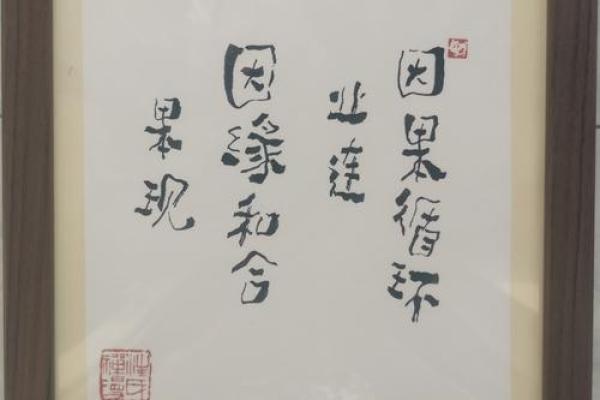 因果循环
业连
因缘和合
果现